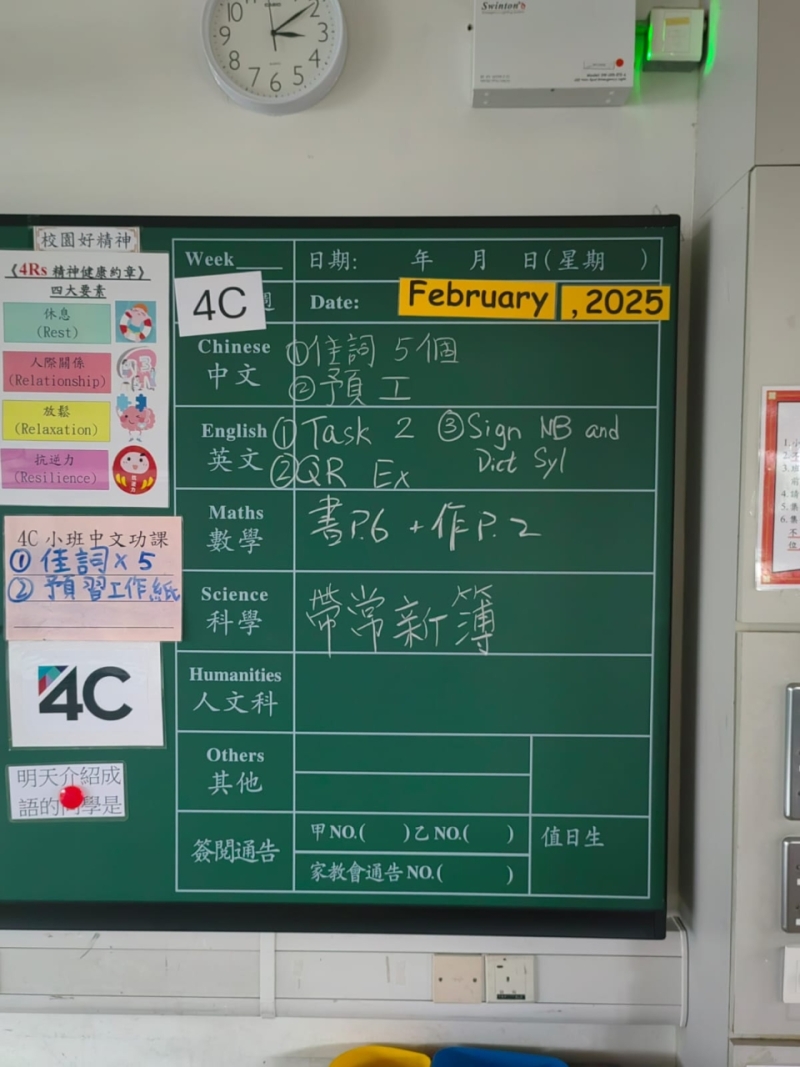 10
2
9
3
8
4
7
6
5
CASIO
Swinton's
校園好精神
《4Rs 精神健康約章》
四大要素
休息
(Rest)
人際關係
(Relationship)
放鬆
(Relaxation)
抗逆力
(Resilience)
抗逆力
4C 小班中文功課
① 佳詞 x 5
② 預習工作紙
4C
明天介紹成
語的同學是
Week____ 日期: 年 月 日(星期 )
4C 週 Date: February , 2025
Chinese ①佳詞 5個
中文 ②預工
English ① Task 2 ③ Sign NB and
Dict Syl
英文 ② QR Ex
Maths
數學 書P.6 + 作P.2
Science
科學 帶常新簿
Humanities
人文科
Others
其他
簽閱通告 甲NO.( )乙NO.( ) 值日生
家教會通告NO.( )
1.
2.
3.
4. 請
5. 集
6. 集
不